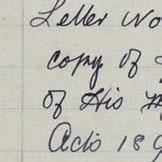 Letter No
copy of
of His
Acts 18